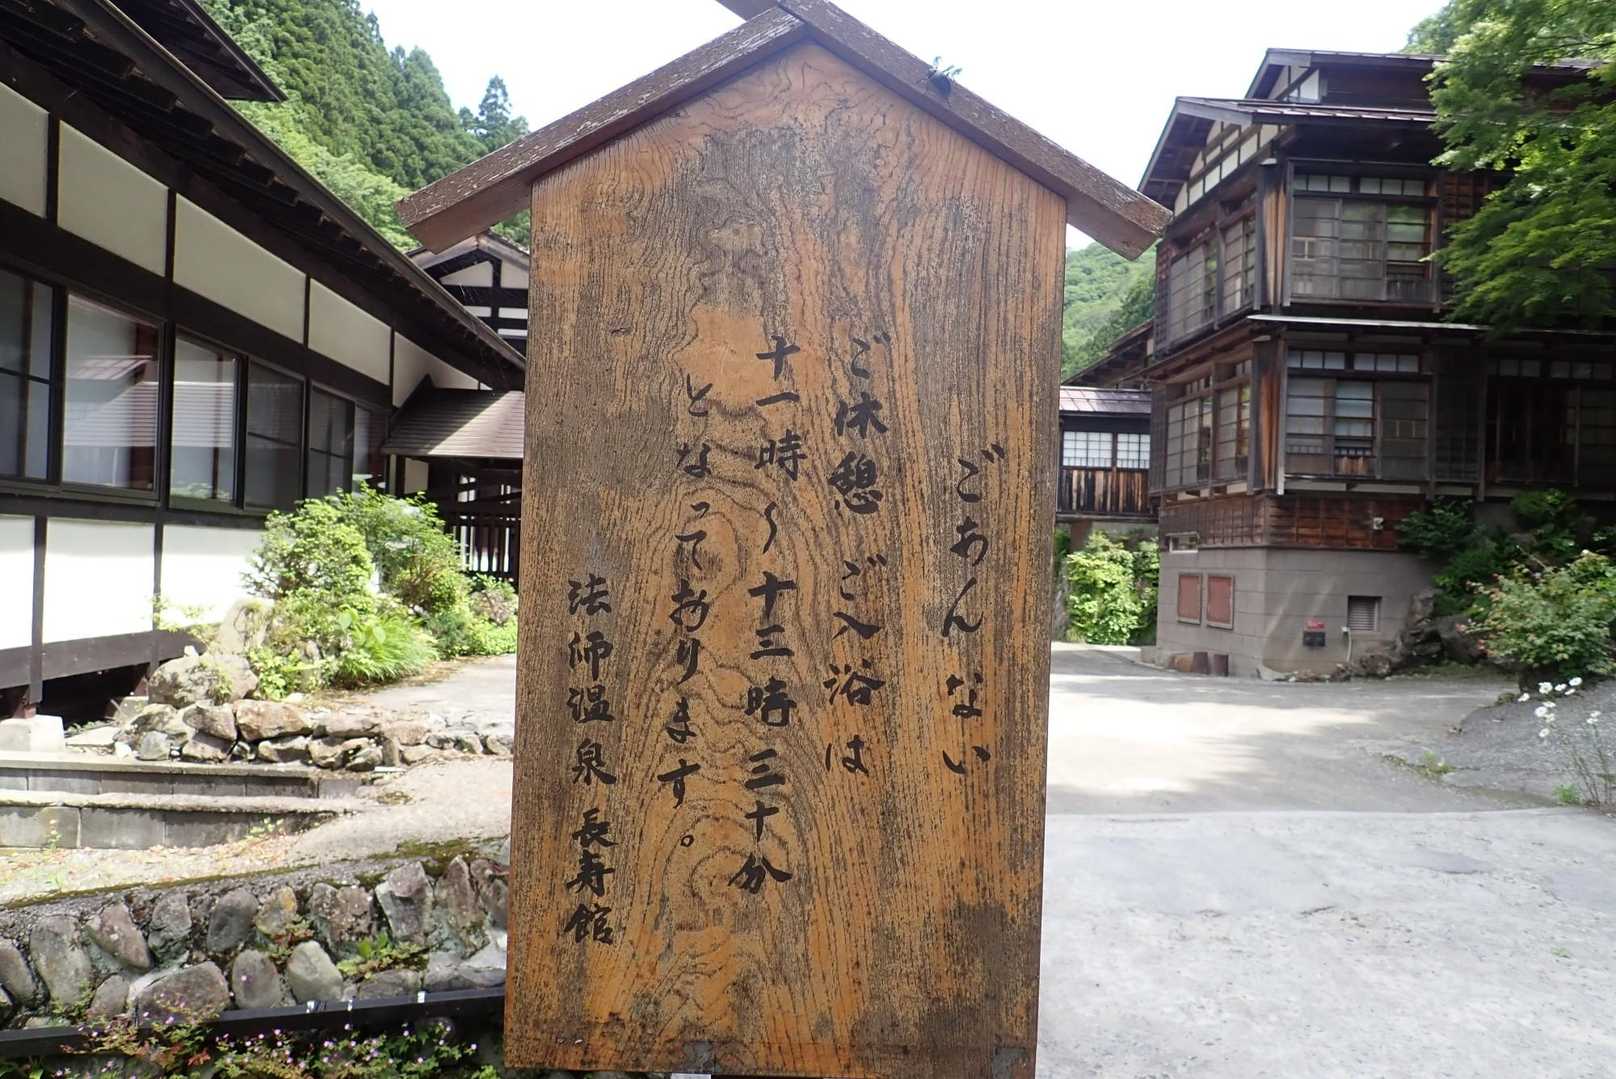 ごあんない
ご休憩 ご入浴は
十一時〜十三時三十分
となっております。
法師温泉 長寿館